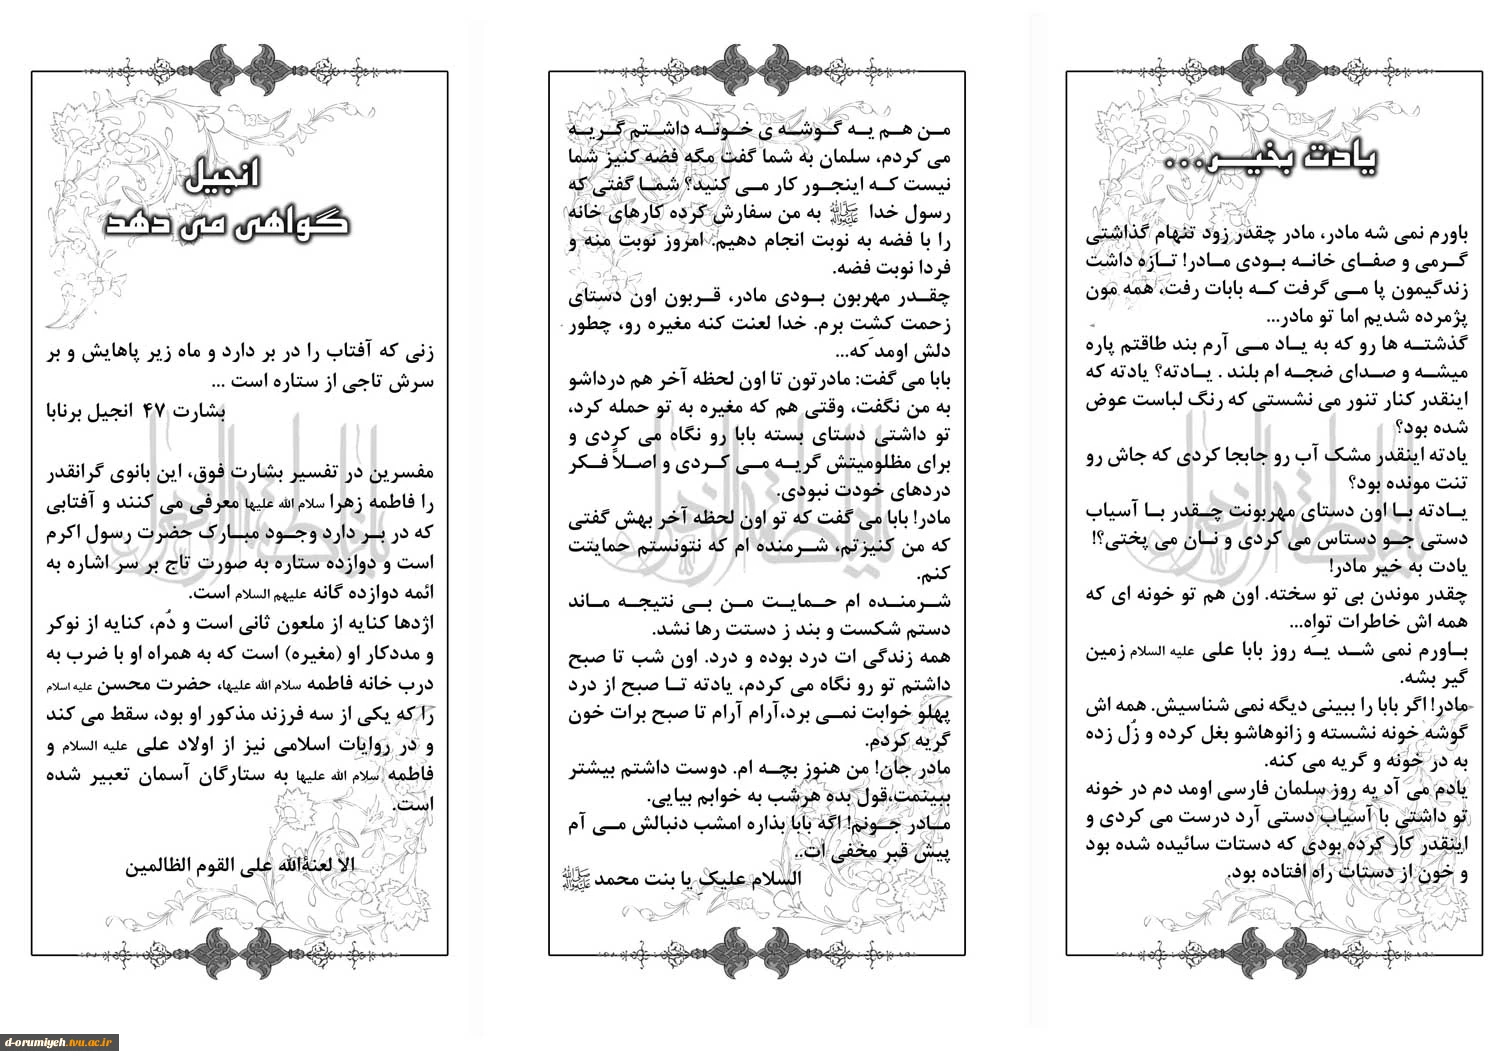 یادت بخیر...
باورم نمی شه مادر، مادر چقدر زود تنهام گذاشتی
گرمی و صفای خانه بودی مادر! تازه داشت
زندگیمون پا می گرفت که بابات رفت، همه مون
پژمرده شدیم اما تو مادر...
گذشته ها رو که به یاد می آرم بند طاقتم پاره
میشه و صدای ضجه ام بلند . یادته؟ یادته که
اینقدر کنار تنور می نشستی که رنگ لباست عوض
شده بود؟
یادته اینقدر مشک آب رو جابجا کردی که جاش رو
تنت مونده بود؟
یادته با اون دستای مهربونت چقدر با آسیاب
دستی جو دستاس می کردی و نان می پختی؟!
یادت به خیر مادر!
چقدر موندن بی تو سخته. اون هم تو خونه ای که
همه اش خاطرات تواِه...
باورم نمی شد یه روز بابا علی علیه السلام زمین
گیر بشه.
مادر! اگر بابا را ببینی دیگه نمی شناسیش. همه اش
گوشه خونه نشسته و زانوهاشو بغل کرده و زُل زده
به در خونه و گریه می کنه.
یادم می آد یه روز سلمان فارسی اومد دم در خونه
تو داشتی با آسیاب دستی آرد درست می کردی و
اینقدر کار کرده بودی که دستات سائیده شده بود
و خون از دستات راه افتاده بود.
من هم یه گوشه ی خونه داشتم گریه
می کردم، سلمان به شما گفت مگه فضه کنیز شما
نیست که اینجور کار می کنید؟ شما گفتی که
رسول خدا ﷺ به من سفارش کرده کارهای خانه
را با فضه به نوبت انجام دهیم. امروز نوبت منه و
فردا نوبت فضه.
چقدر مهربون بودی مادر، قربون اون دستای
زحمت کشت برم. خدا لعنت کنه مغیره رو، چطور
دلش اومد که...
بابا می گفت: مادرتون تا اون لحظه آخر هم درداشو
به من نگفت، وقتی هم که مغیره به تو حمله کرد،
تو داشتی دستای بسته بابا رو نگاه می کردی و
برای مظلومیتش گریه می کردی و اصلاً فکر
دردهای خودت نبودی.
مادر! بابا می گفت که تو اون لحظه آخر بهش گفتی
که من کنیزتم، شرمنده ام که نتونستم حمایتت
کنم.
شرمنده ام حمایت من بی نتیجه ماند
دستم شکست و بند ز دستت رها نشد.
همه زندگی ات درد بوده و درد. اون شب تا صبح
داشتم تو رو نگاه می کردم، یادته تا صبح از درد
پهلو خوابت نمی برد،آرام آرام تا صبح برات خون
گریه کردم.
مادر جان! من هنوز بچه ام. دوست داشتم بیشتر
ببینمت،قول بده هرشب به خوابم بیایی.
مادر جونم! اگه بابا بذاره امشب دنبالش می آم
پیش قبر مخفی ات..
السلام علیکِ یا بنت محمد ﷺ
انجیل
گواهی می دهد
زنی که آفتاب را در بر دارد و ماه زیر پاهایش و بر
سرش تاجی از ستاره است ...
بشارت ۴۷ انجیل برنابا
مفسرین در تفسیر بشارت فوق، این بانوی گرانقدر
را فاطمه زهرا سلام الله علیها معرفی می کنند و آفتابی
که در بر دارد وجود مبارک حضرت رسول اکرم
است و دوازده ستاره به صورت تاج بر سر اشاره به
ائمه دوازده گانه علیهم السلام است.
اژدها کنایه از ملعون ثانی است و دُم، کنایه از نوکر
و مددکار او (مغیره) است که به همراه او با ضرب به
درب خانه فاطمه سلام الله علیها، حضرت محسن علیه اسلام
را که یکی از سه فرزند مذکور او بود، سقط می کند
و در روایات اسلامی نیز از اولاد علی علیه السلام و
فاطمه سلام الله علیها به ستارگان آسمان تعبیر شده
است.
الا لعنةالله علی القوم الظالمین
d-orumiyeh.tvu.ac.ir